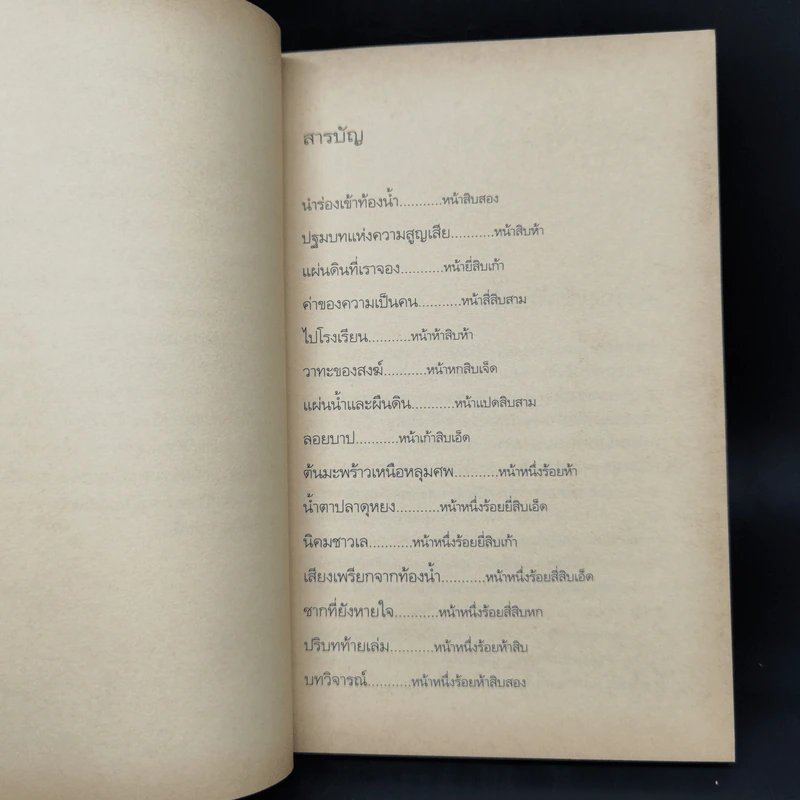 สารบัญ
นำร่องเข้าท้องน้ำ...........หน้าสิบสอง
ปฐมบทแห่งความสูญเสีย...........หน้าสิบห้า
แผ่นดินที่เราจอง...........หน้ายี่สิบเก้า
ค่าของความเป็นคน...........หน้าสี่สิบสาม
ไปโรงเรียน...........หน้าห้าสิบห้า
วาทะของสงฆ์...........หน้าหกสิบเจ็ด
แผ่นน้ำและผืนดิน...........หน้าแปดสิบสาม
ลอยบาป...........หน้าเก้าสิบเอ็ด
ต้นมะพร้าวเหนือหลุมศพ...........หน้าหนึ่งร้อยห้า
น้ำตาปลาดุหยง...........หน้าหนึ่งร้อยยี่สิบเอ็ด
นิคมชาวเล...........หน้าหนึ่งร้อยยี่สิบเก้า
เสียงเพรียกจากท้องน้ำ...........หน้าหนึ่งร้อยสี่สิบเอ็ด
ซากที่ยังหายใจ...........หน้าหนึ่งร้อยสี่สิบหก
ปริบทท้ายเล่ม...........หน้าหนึ่งร้อยห้าสิบ
บทวิจารณ์...........หน้าหนึ่งร้อยห้าสิบสอง